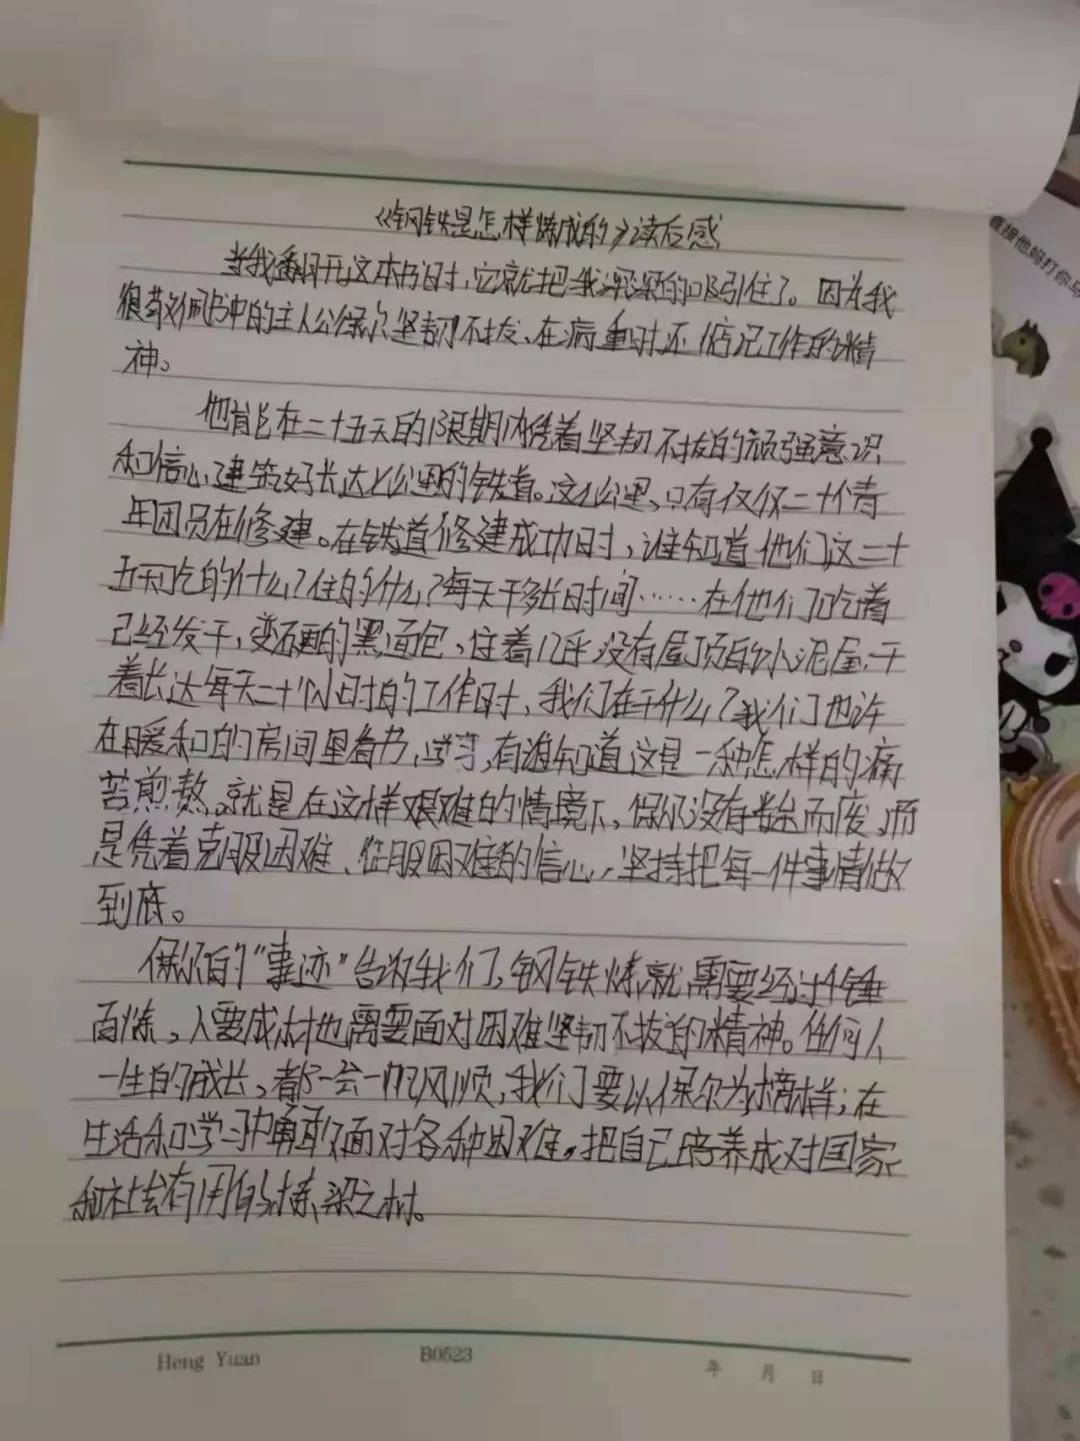 《钢铁是怎样炼成的》读后感
当我翻开这本书时，它就把我深深的吸引住了。因为我
很敬佩书中的主人公保尔坚韧不拔、在病重时还惦记工作的精
神。
他能在二十五天的限期内凭着坚韧不拔的顽强意识
和信心建筑好长达七公里的铁道。这七公里、只有仅仅二十个青
年团员在修建。在铁道修建成功时，谁知道他们这二十
五天吃的什么？住的什么？每天干多长时间……在他们吃着
已经发干，变硬的黑面包，住着几乎没有屋顶的小泥屋，干
着长达每天二十个小时的工作时，我们在干什么？我们也许
在暖和的房间里看书，学习，有谁知道这是一种怎样的痛
苦煎熬，就是在这样艰难的情境下，保尔没有半余而废，而
是凭着克服困难、征服困难的信心，坚持把每一件事情做
到底。
保尔的“事迹”告诉我们，钢铁炼就需要经过千锤
百炼，人要成材也需要面对困难坚韧不拔的精神。任何人
一生的成长，都不会一帆风顺，我们要以保尔为榜样；在
生活和学习中勇敢面对各种困难，把自己培养成对国家
和社会有用的栋梁之材。
Heng Yuan
B0523
年 月 日
直接他妈打你马